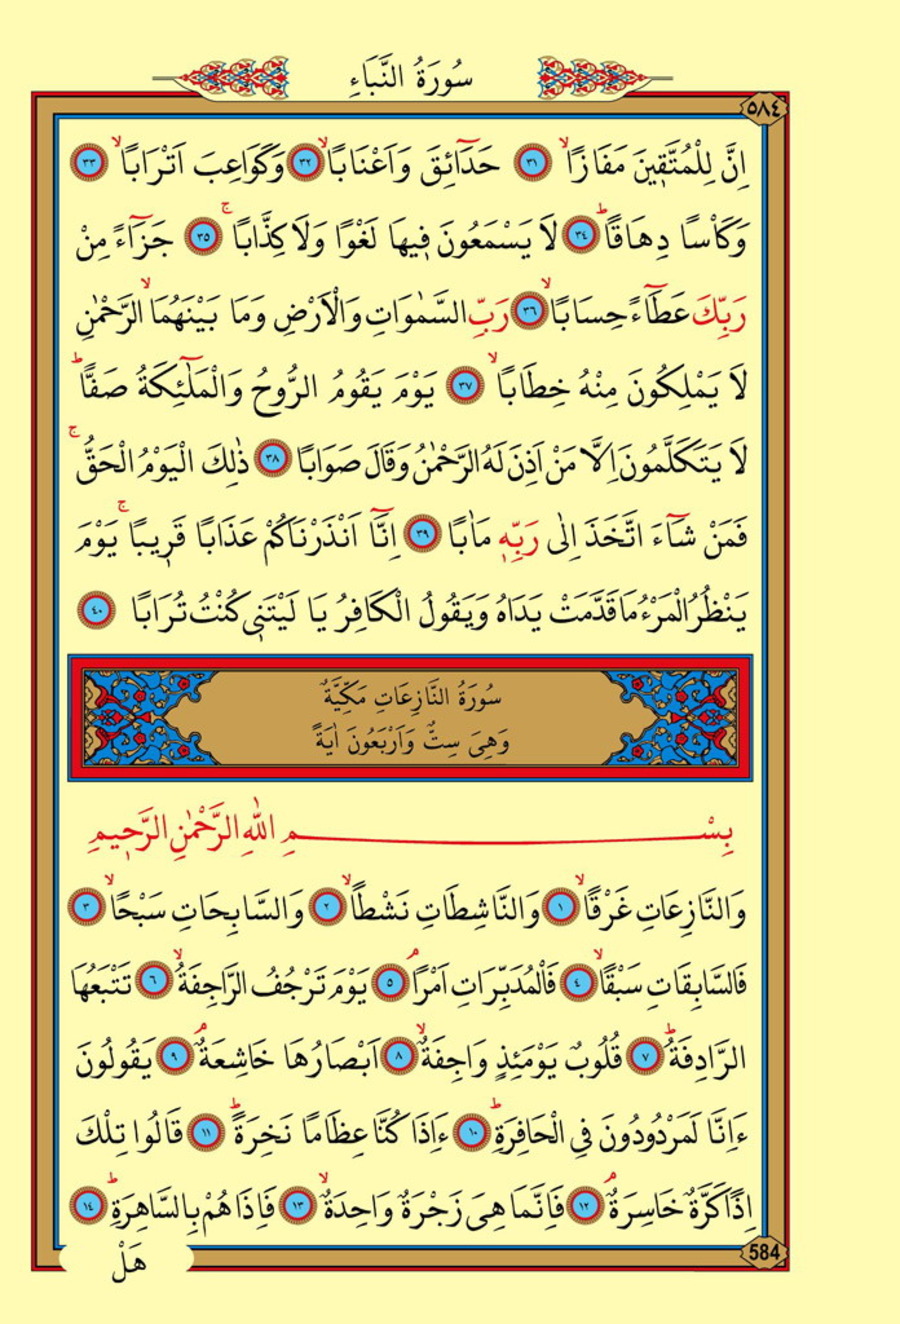 سُورَةُ النَّبَاءِ
٥٨٤
اِنَّ لِلْمُتَّقٖينَ مَفَازًاۙ ٣١ حَدَٓائِقَ وَاَعْنَابًاۙ ٣٢ وَكَوَاعِبَ اَتْرَابًاۙ ٣٣
وَكَاْسًا دِهَاقًاؕ ٣٤ لَا يَسْمَعُونَ فٖيهَا لَغْوًا وَلَا كِذَّابًاۚ ٣٥ جَزَٓاءً مِنْ
رَبِّكَ عَطَٓاءً حِسَابًاۙ ٣٦ رَبِّ السَّمٰوَاتِ وَالْاَرْضِ وَمَا بَيْنَهُمَاۙ الرَّحْمٰنِ
لَا يَمْلِكُونَ مِنْهُ خِطَابًاۙ ٣٧ يَوْمَ يَقُومُ الرُّوحُ وَالْمَلٰٓئِكَةُ صَفًّاؕ
لَا يَتَكَلَّمُونَ اِلَّا مَنْ اَذِنَ لَهُ الرَّحْمٰنُ وَقَالَ صَوَابًا ٣٨ ذٰلِكَ الْيَوْمُ الْحَقُّۚ
فَمَنْ شَٓاءَ اتَّخَذَ اِلٰى رَبِّهٖ مَاٰبًا ٣٩ اِنَّٓا اَنْذَرْنَاكُمْ عَذَابًا قَرٖيبًاۚ يَوْمَ
يَنْظُرُ الْمَرْءُ مَا قَدَّمَتْ يَدَاهُ وَيَقُولُ الْكَافِرُ يَا لَيْتَنٖى كُنْتُ تُرَابًا ٤٠
سُورَةُ النَّازِعَاتِ مَكِّيَّةٌ
وَهِىَ سِتٌّ وَاَرْبَعُونَ اٰيَةً
بِسْمِ اللّٰهِ الرَّحْمٰنِ الرَّحٖيمِ
وَالنَّازِعَاتِ غَرْقًاۙ ١ وَالنَّاشِطَاتِ نَشْطًاۙ ٢ وَالسَّابِحَاتِ سَبْحًاۙ ٣
فَالسَّابِقَاتِ سَبْقًاۙ ٤ فَالْمُدَبِّرَاتِ اَمْرًاۘ ٥ يَوْمَ تَرْجُفُ الرَّاجِفَةُۙ ٦ تَتْبَعُهَا
الرَّادِفَةُؕ ٧ قُلُوبٌ يَوْمَئِذٍ وَاجِفَةٌۙ ٨ اَبْصَارُهَا خَاشِعَةٌۘ ٩ يَقُولُونَ
ءَاِنَّا لَمَرْدُودُونَ فِى الْحَافِرَةِؕ ١٠ ءَاِذَا كُنَّا عِظَامًا نَخِرَةًؕ ١١ قَالُوا تِلْكَ
اِذًا كَرَّةٌ خَاسِرَةٌۘ ١٢ فَاِنَّمَا هِىَ زَجْرَةٌ وَاحِدَةٌۙ ١٣ فَاِذَا هُمْ بِالسَّاهِرَةِؕ ١٤
584
هَلْ